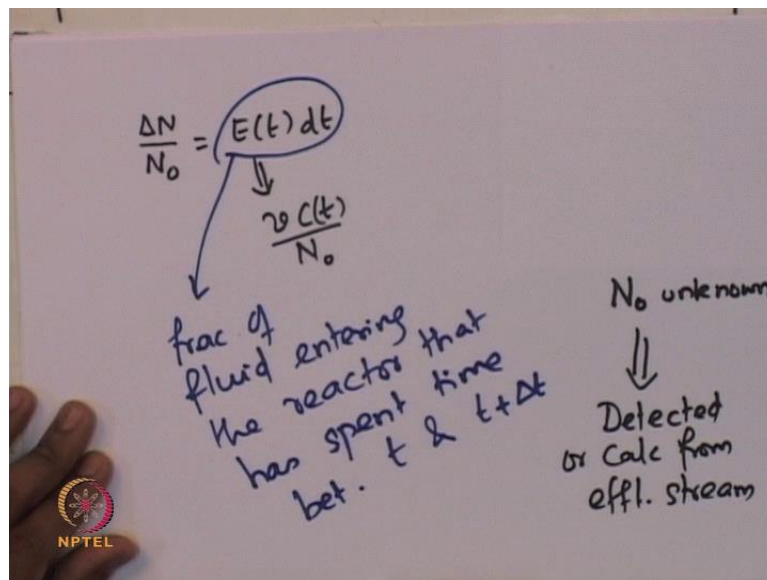 ΔN/N₀ = E(t) dt
υ C(t)/N₀
frac of
fluid entering
the reactor that
has spent time
bet. t & t+Δt
N₀ unknown
Detected
or Calc from
effl. stream
NPTEL